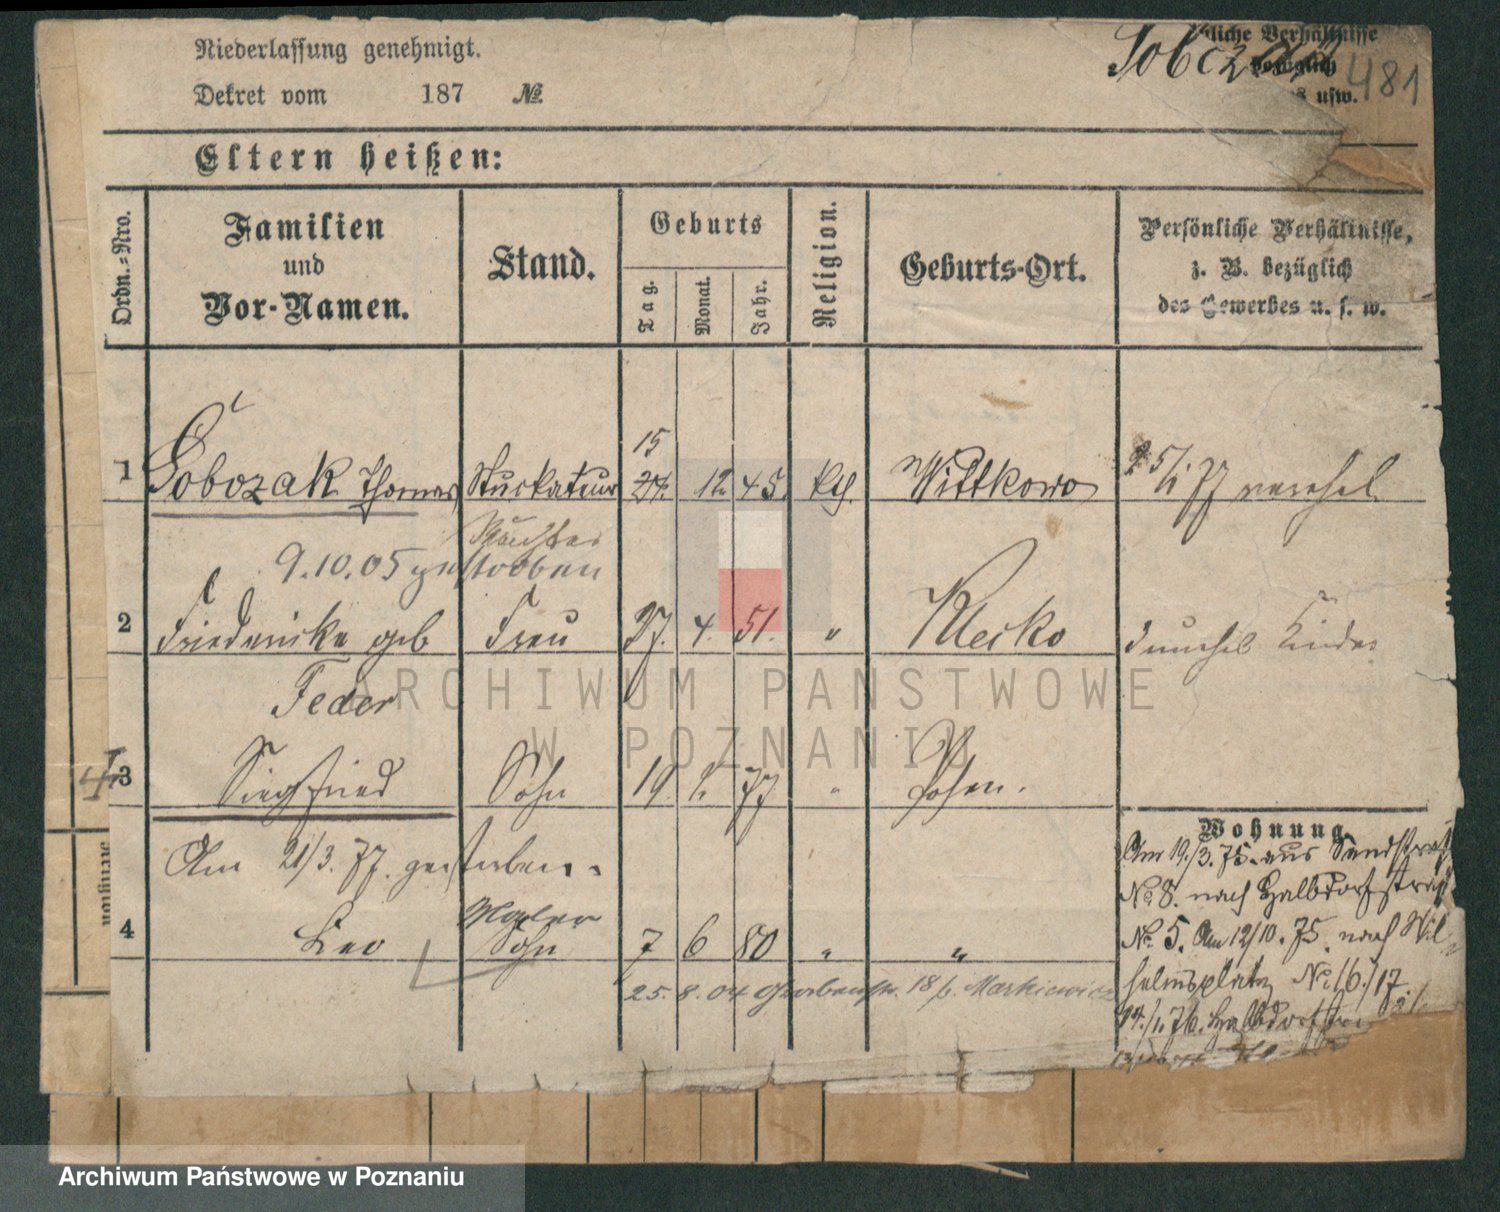 Niederlassung genehmigt.
Dekret vom 187 №
Sobczak
liche Verhältnisse
bezüglich
usw.
481
Eltern heißen:
Ordn.-Nro.
Familien
und
Vor-Namen.
Stand.
Geburts
Tag.
Monat.
Jahr.
Religion.
Geburts-Ort.
Persönliche Verhältnisse,
z. B. bezüglich
des Gewerbes u. s. w.
15
1 Sobczak Thomas Stuckateur 27. 12. 45. kth. Wittkowo 25/1 77
9.10.05 gestorben
2 Friedericke geb Frau 27. 4. 51. " Klecko Kinder
Feder
4
3 Siegfried Sohn 19. 1. 77 " Posen.
Am 21/3. 77. gestorben.
Maler
4 Leo Sohn 7 6 80 " "
25. 8. 04 18 b. Markiewicz
Wohnung
Am 19./3. 75. aus Sandstraß
No 8. nach Halbdorfstraß
No. 5. Am 12/10. 75. nach Wil-
helmsplatz No 16./17.
14./1. 76. Halbdorfstr
ARCHIWUM PAŃSTWOWE
W POZNANIU
Archiwum Państwowe w Poznaniu